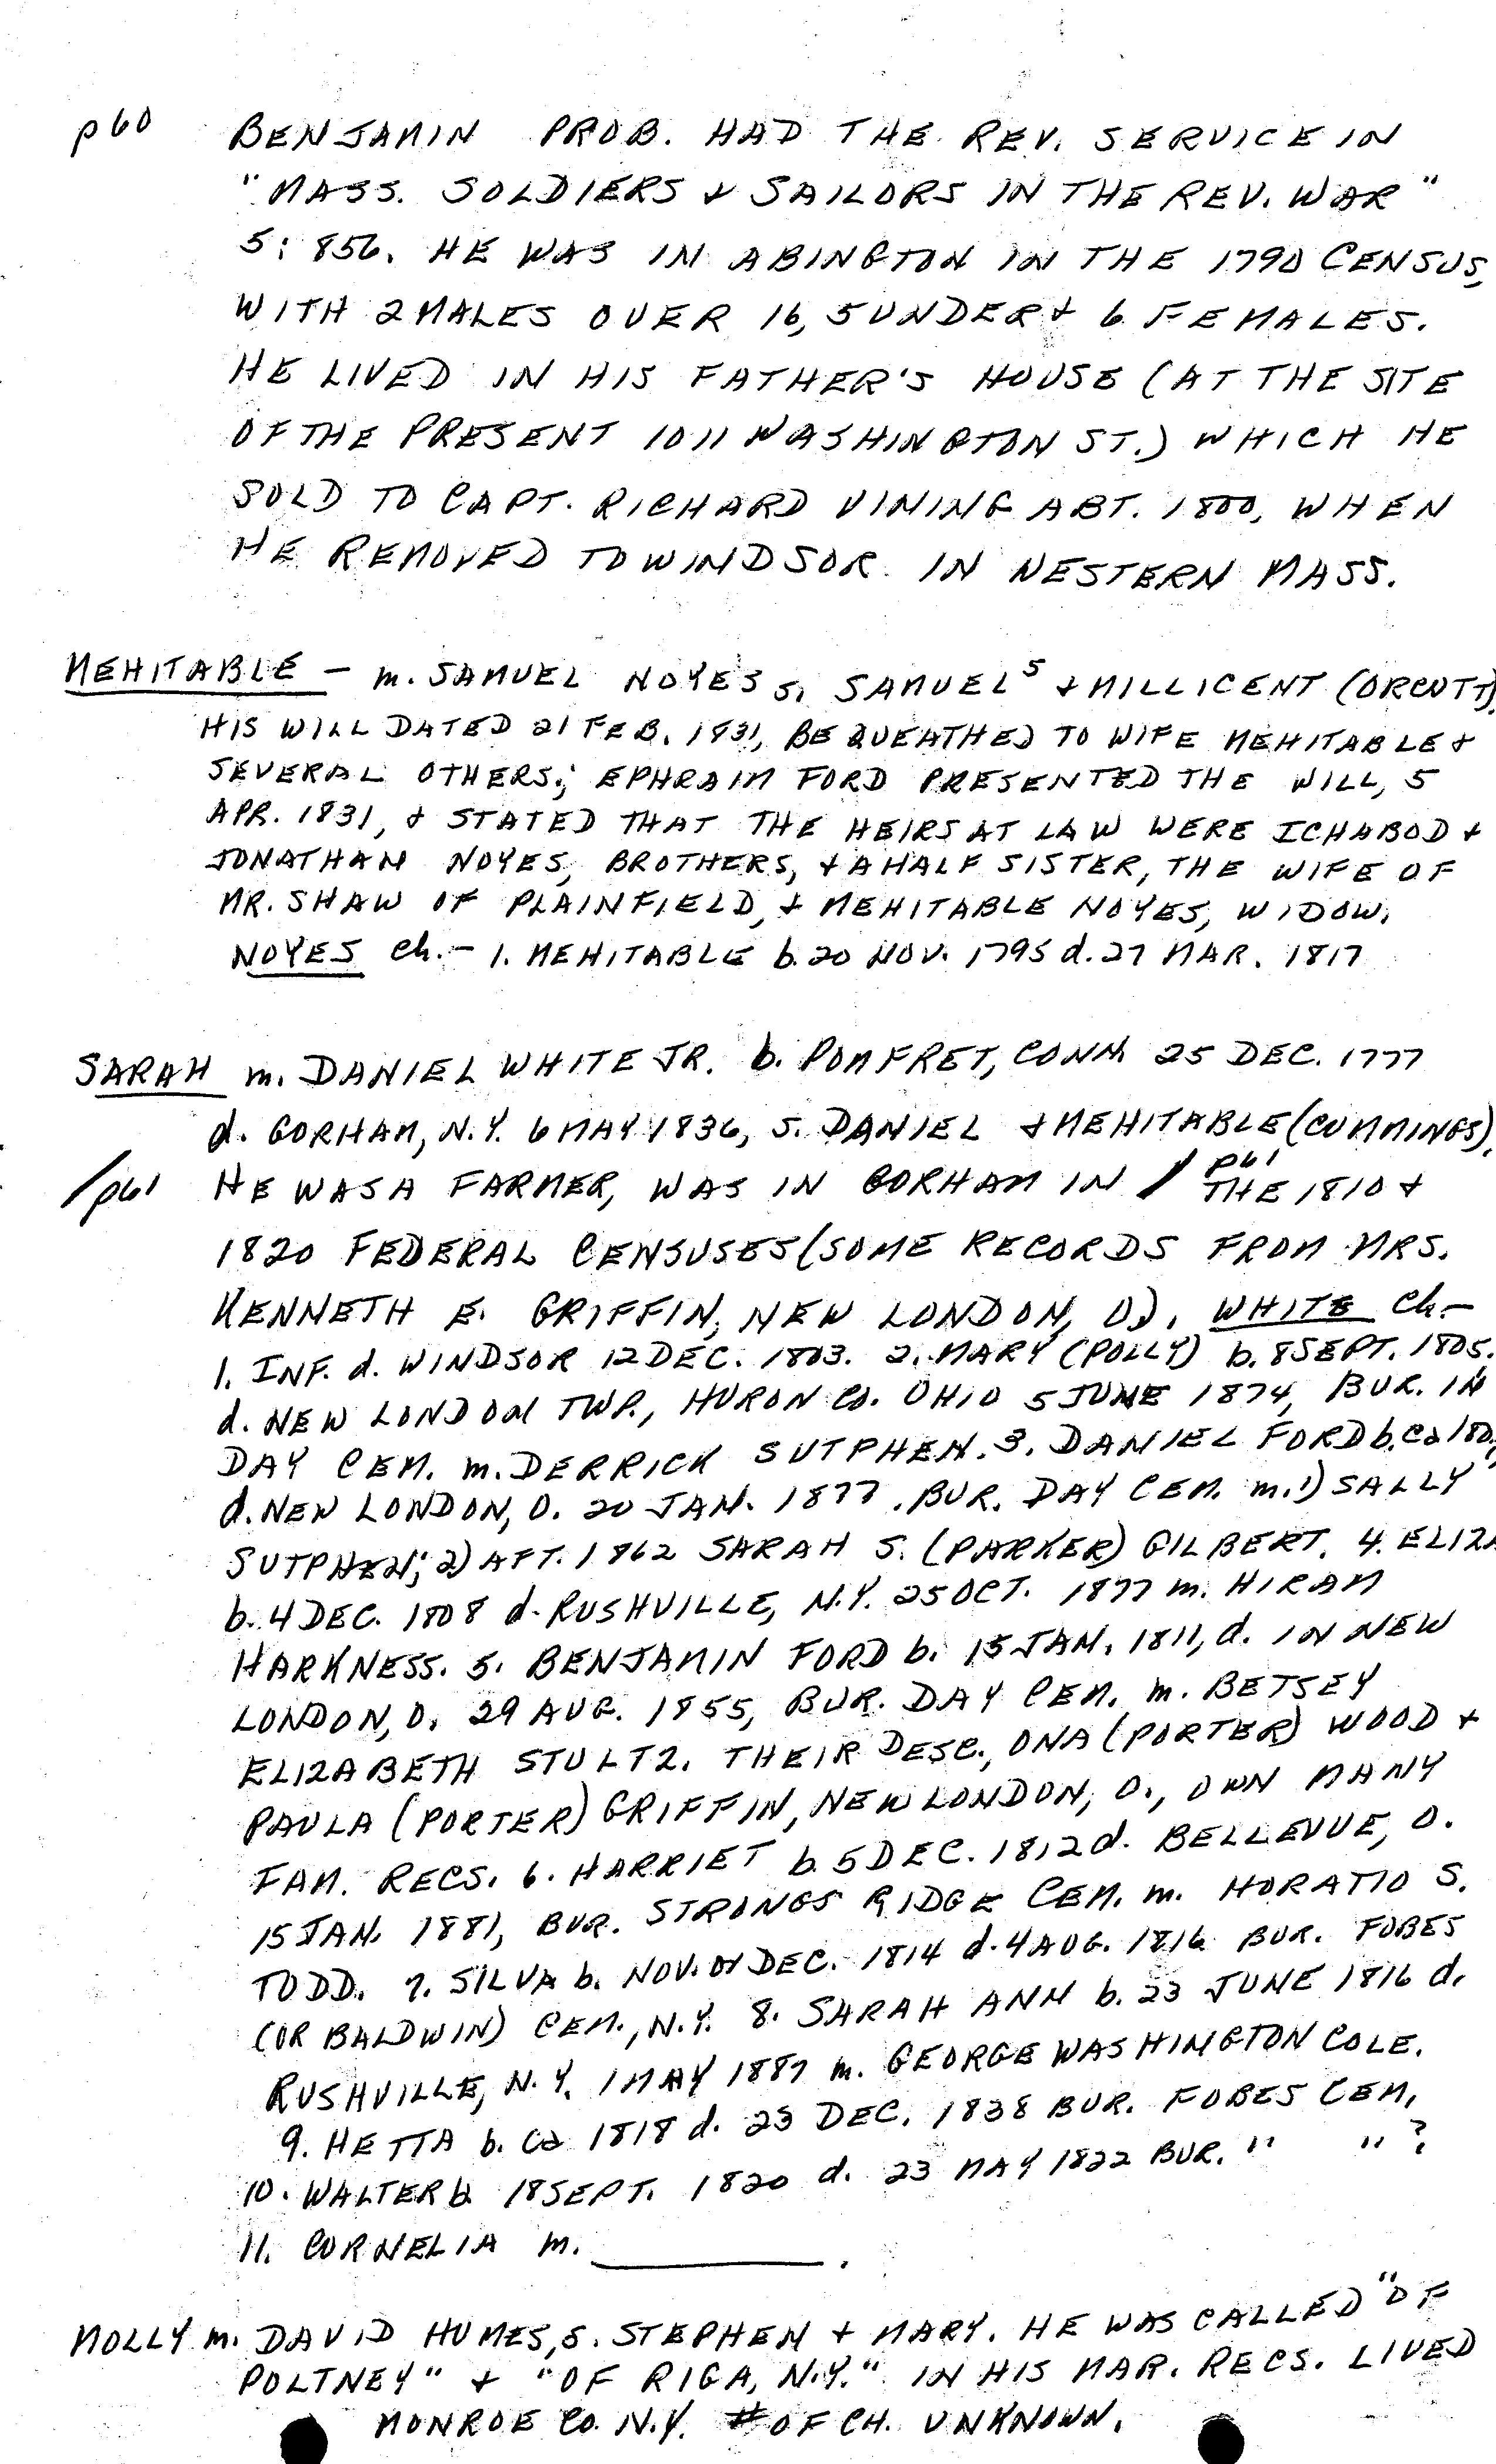 p60 BENJAMIN PROB. HAD THE REV. SERVICE IN
"MASS. SOLDIERS & SAILORS IN THE REV. WAR"
5:856. HE WAS IN ABINGTON IN THE 1790 CENSUS,
WITH 2 MALES OVER 16, 5 UNDER & 6 FEMALES.
HE LIVED IN HIS FATHER'S HOUSE (AT THE SITE
OF THE PRESENT 1011 WASHINGTON ST.) WHICH HE
SOLD TO CAPT. RICHARD VINING ABT. 1800, WHEN
HE REMOVED TO WINDSOR IN WESTERN MASS.
MEHITABLE – m. SAMUEL NOYES s. SAMUEL⁵ & MILLICENT (ORCUTT).
HIS WILL DATED 21 FEB. 1831, BEQUEATHED TO WIFE MEHITABLE &
SEVERAL OTHERS; EPHRAIM FORD PRESENTED THE WILL, 5
APR. 1831, & STATED THAT THE HEIRS AT LAW WERE ICHABOD &
JONATHAN NOYES, BROTHERS, & A HALF SISTER, THE WIFE OF
MR. SHAW OF PLAINFIELD, & MEHITABLE NOYES, WIDOW.
NOYES ch.– 1. MEHITABLE b. 20 NOV. 1795 d. 27 MAR. 1817
SARAH m. DANIEL WHITE JR. b. POMFRET, CONN. 25 DEC. 1777
d. GORHAM, N.Y. 6 MAY 1836, s. DANIEL & MEHITABLE (CUMMINGS).
/p61 HE WAS A FARMER, WAS IN GORHAM IN / p61 THE 1810 &
1820 FEDERAL CENSUSES (SOME RECORDS FROM MRS.
KENNETH E. GRIFFIN, NEW LONDON, O.). WHITE ch.–
1. INF. d. WINDSOR 12 DEC. 1803. 2. MARY (POLLY) b. 8 SEPT. 1805.
d. NEW LONDON TWP., HURON CO. OHIO 5 JUNE 1874, BUR. IN
DAY CEM. m. DERRICK SUTPHEN. 3. DANIEL FORD b. ca
d. NEW LONDON, O. 20 JAN. 1877. BUR. DAY CEM. m. 1) SALLY
SUTPHEN; 2) AFT. 1862 SARAH S. (PARKER) GILBERT. 4. ELIZA
b. 4 DEC. 1808 d. RUSHVILLE, N.Y. 25 OCT. 1877 m. HIRAM
HARKNESS. 5. BENJAMIN FORD b. 15 JAN. 1811, d. IN NEW
LONDON, O. 29 AUG. 1855, BUR. DAY CEM. m. BETSEY
ELIZABETH STULTZ. THEIR DESC., ONA (PORTER) WOOD &
PAULA (PORTER) GRIFFIN, NEW LONDON, O., OWN MANY
FAM. RECS. 6. HARRIET b. 5 DEC. 1812 d. BELLEVUE, O.
15 JAN. 1881, BUR. STRONGS RIDGE CEM. m. HORATIO S.
TODD. 7. SILVA b. NOV. or DEC. 1814 d. 4 AUG. 1816 BUR. FOBES
(OR BALDWIN) CEM., N.Y. 8. SARAH ANN b. 23 JUNE 1816 d.
RUSHVILLE, N.Y. 1 MAY 1887 m. GEORGE WASHINGTON COLE.
9. HETTA b. ca 1818 d. 23 DEC. 1838 BUR. FOBES CEM.
10. WALTER b. 18 SEPT. 1820 d. 23 MAY 1822 BUR. " " ?
11. CORNELIA m. ________.
MOLLY m. DAVID HUMES, s. STEPHEN & MARY. HE WAS CALLED "OF
POLTNEY" & "OF RIGA, N.Y." IN HIS MAR. RECS. LIVED
MONROE CO. N.Y. # OF CH. UNKNOWN.